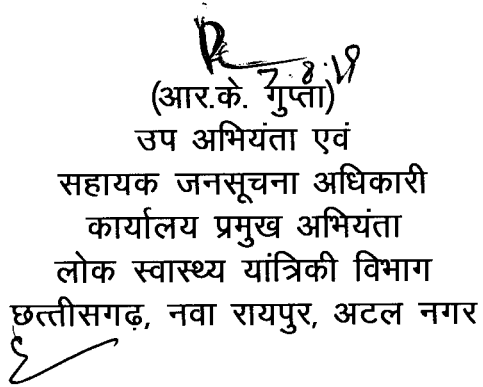 7.8.19
(आर.के. गुप्ता)
उप अभियंता एवं
सहायक जनसूचना अधिकारी
कार्यालय प्रमुख अभियंता
लोक स्वास्थ्य यांत्रिकी विभाग
छत्तीसगढ़, नवा रायपुर, अटल नगर